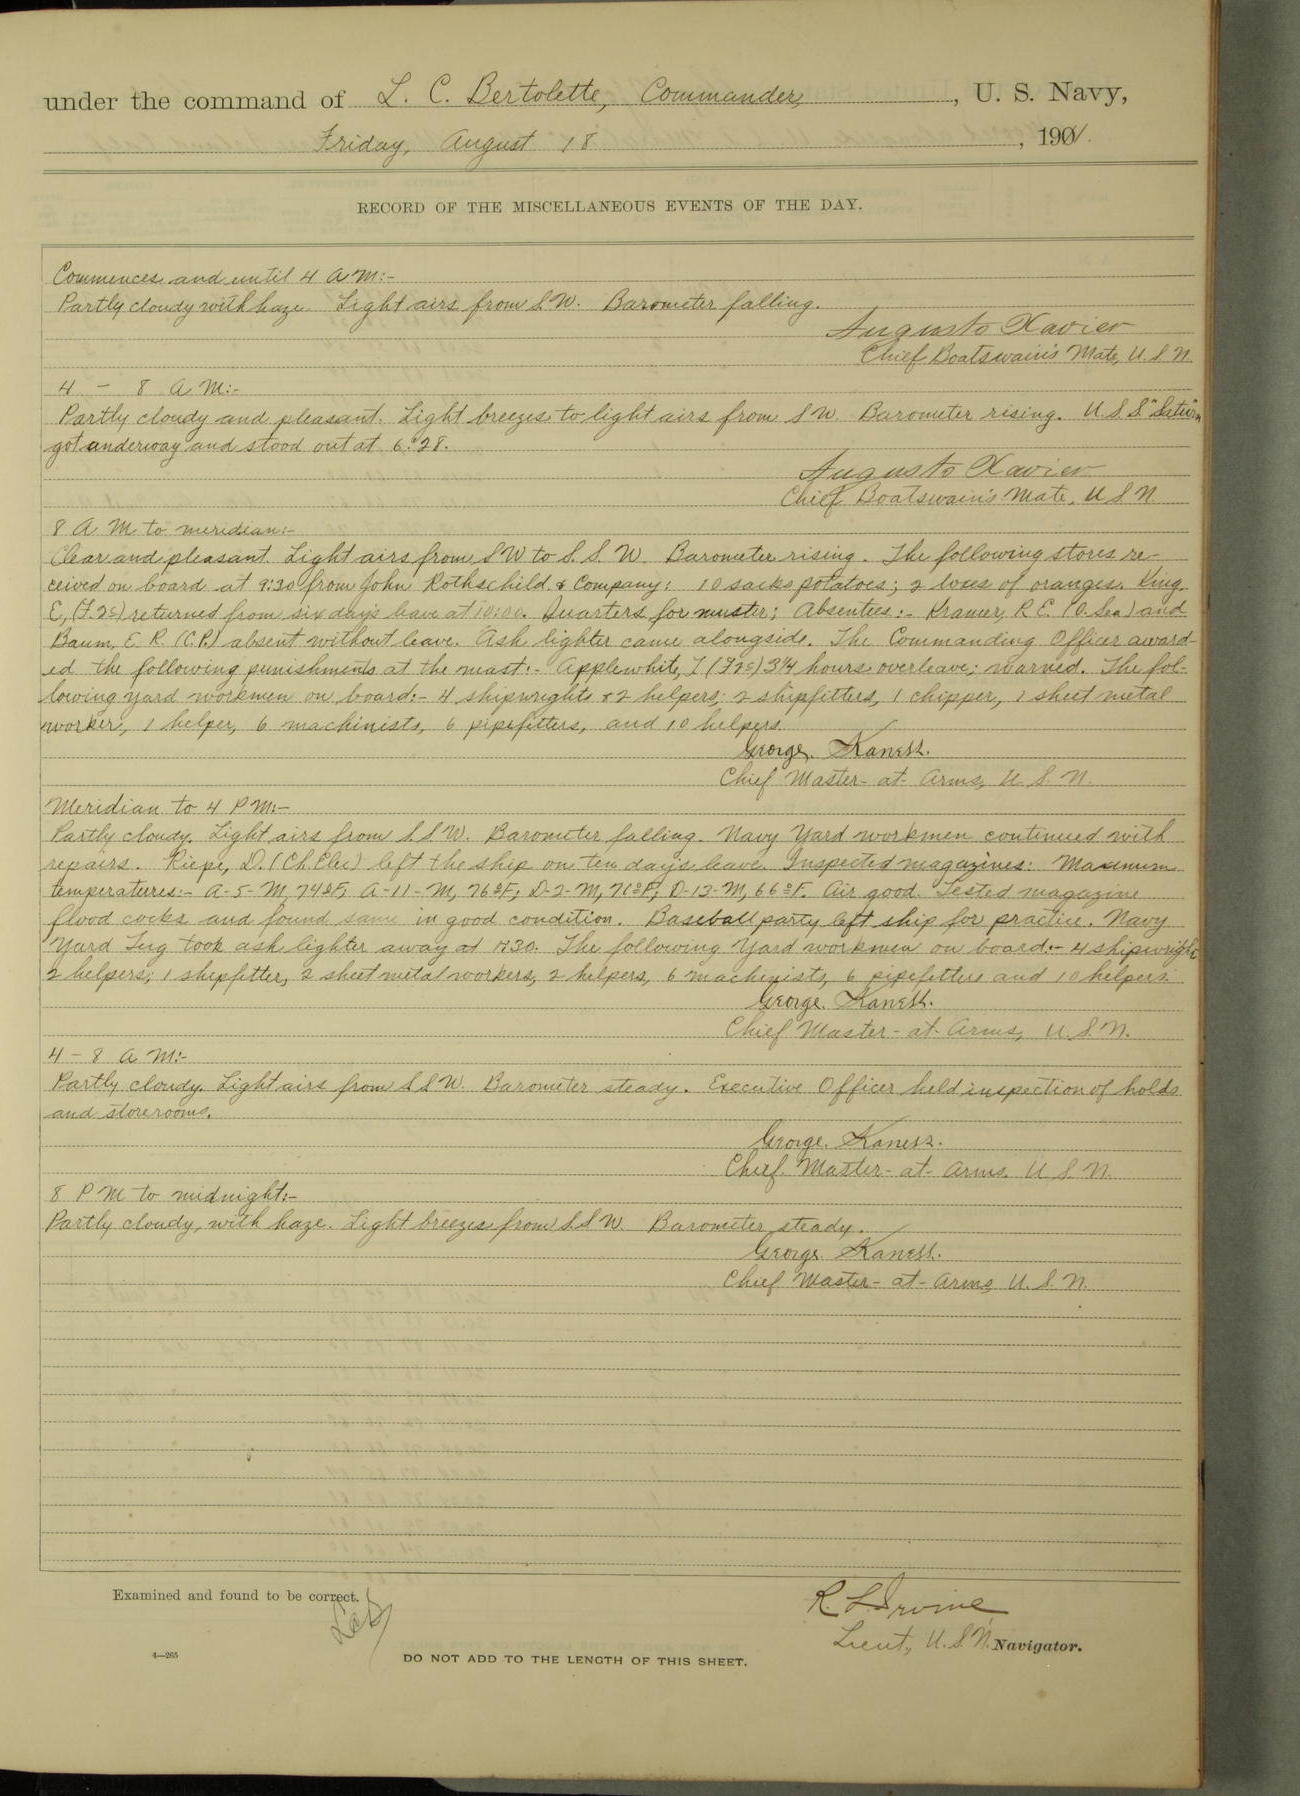 under the command of L. C. Bertolette, Commander, , U. S. Navy,
Friday, August 18 , 1901.
RECORD OF THE MISCELLANEOUS EVENTS OF THE DAY.
Commences and until 4 A M:-
Partly cloudy with haze. Light airs from S.W. Barometer falling.
Augusto Xavier
Chief Boatswain's Mate, U. S. N.
4 - 8 A M:-
Partly cloudy and pleasant. Light breezes to light airs from S W. Barometer rising. U.S.S "Saturn
got underway and stood out at 6:28.
Augusto Xavier
Chief Boatswain's Mate, U S N.
8 A M to meridian:-
Clear and pleasant. Light airs from S W to S. S. W. Barometer rising. The following stores re-
ceived on board at 9:30 from John Rothschild & Company: 10 sacks potatoes; 2 boxes of oranges. King,
E, (F.2c) returned from six days leave at 10:00. Quarters for muster; Absentees:- Kramer, R. E. (O. Sea) and
Baum, E. R. (C.P.) absent without leave. Ash lighter came alongside. The Commanding Officer award-
ed the following punishments at the mast:- Applewhite, J (F2c) 3¼ hours overleave; warned. The fol-
lowing yard workmen on board:- 4 shipwrights & 2 helpers; 2 shipfitters, 1 chipper, 1 sheet metal
worker, 1 helper, 6 machinists, 6 pipefitters, and 10 helpers.
George Kaness.
Chief Master-at-Arms, U. S. N.
Meridian to 4 P M:-
Partly cloudy. Light airs from S.S.W. Barometer falling. Navy Yard workmen continued with
repairs. Riepe, D. (Ch. Elec) left the ship on ten days leave. Inspected magazines: Maximum
temperatures:- A-5-M, 74°F; A-11-M, 76°F; D-2-M, 71°F; D-13-M, 66°F. Air good. Tested magazine
flood cocks and found same in good condition. Baseball party left ship for practice. Navy
Yard Tug took ash lighter away at 1:30. The following Yard workmen on board:- 4 shipwrights
2 helpers; 1 shipfitter, 2 sheet metal workers, 2 helpers, 6 machinists, 6 pipefitters and 10 helpers.
George Kaness.
Chief Master-at-Arms, U. S. N.
4 - 8 A M:-
Partly cloudy. Light airs from S.S.W. Barometer steady. Executive Officer held inspection of holds
and storerooms.
George Kaness.
Chief Master-at-Arms. U. S. N.
8 P M to midnight:-
Partly cloudy, with haze. Light breezes from S.S.W. Barometer steady.
George Kaness.
Chief Master-at-Arms, U. S. N.
Examined and found to be correct.
LCB
R. L. Irvine
Lieut, U. S. N. Navigator.
4—265
DO NOT ADD TO THE LENGTH OF THIS SHEET.